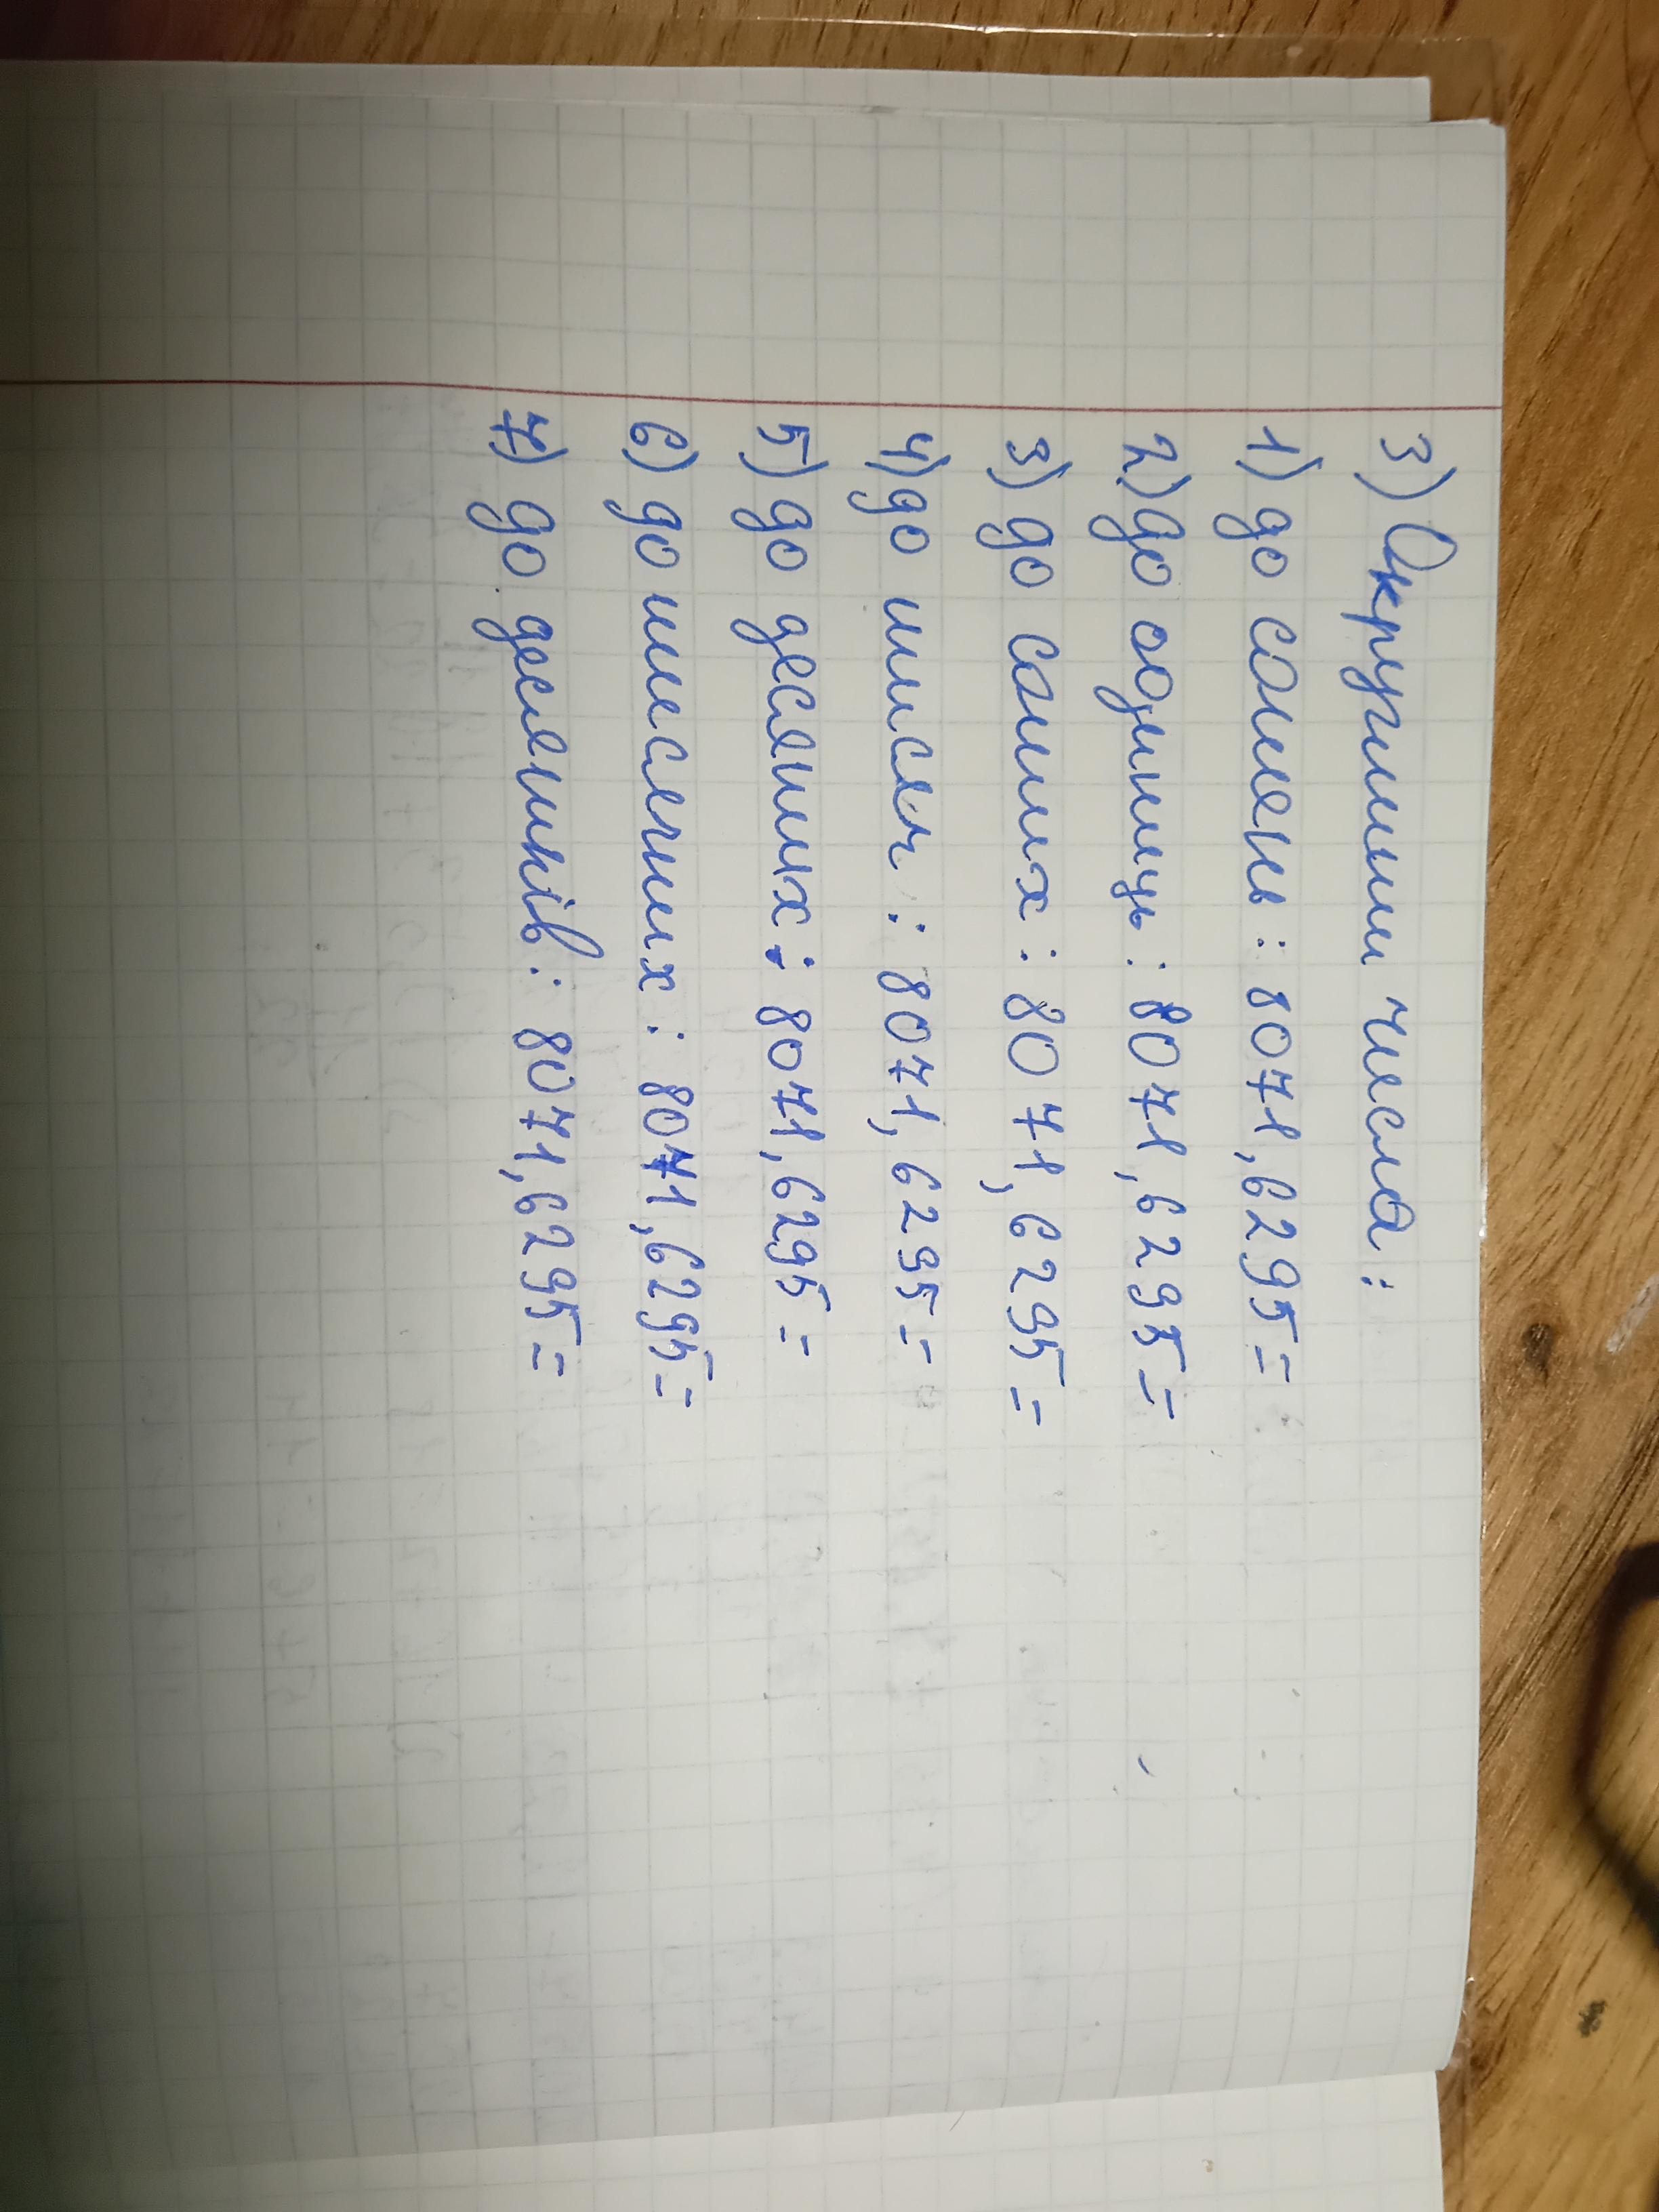 3) Округлити числа:
1) до сотень: 8071,6295=
2) до одиниць: 8071,6295=
3) до сотих: 8071,6295=
4) до тисяч: 8071,6295=
5) до десятих: 8071,6295=
6) до тисячних: 8071,6295=
7) до десятків: 8071,6295=